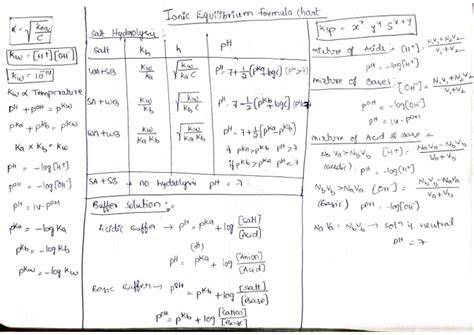 Ionic Equilibrium formula chart
α = √(Ka/C)
Kw = [H⁺][OH⁻]
Kw = 10⁻¹⁴
Kw α Temperature
pH + pOH = pKw
pKa + pKb = pKw
Ka × Kb = Kw
pH = -log[H⁺]
pOH = -log[OH⁻]
pH = 14 - pOH
pKa = -log Ka
pKb = -log Kb
pKw = -log Kw
Salt Hydrolysis :
Salt Kh h pH
WA+SB Kw/Ka √(Kw/Ka C) pH = 7+½(pKa+logC) (pH>7)
SA+WB Kw/Kb √(Kw/Kb C) pH = 7-½[pKb+logC] (pH<7)
WA+WB Kw/Ka Kb √(Kw/Ka Kb) pH = 7+½[pKa-pKb]
if pKa>pKb pH>7
if pKb>pKa pH<7
SA+SB → no hydrolysis pH = 7
Buffer solution :
Acidic buffer → pH = pKa + log [Salt]/[Acid]
(or)
pH = pKa + log [Anion]/[Acid]
Basic buffer → pOH = pKb + log [Salt]/[Base]
pOH = pKb + log [Cation]/[Base]
Ksp = xˣ yʸ Sˣ⁺ʸ
mixture of Acids : [H⁺] = N₁V₁+N₂V₂/V₁+V₂
pH = -log[H⁺]
mixture of Bases : [OH⁻] = N₁V₁+N₂V₂/V₁+V₂
pOH = -log[OH⁻]
pH = 14-pOH
mixture of Acid & Base =
NaVa>NbVb [H⁺] = NaVa-NbVb/Va+Vb
(acidic) pH = -log[H⁺]
NbVb>NaVa [OH⁻] = NbVb-NaVa/Va+Vb
(Basic) pOH = -log[OH⁻]
NaVa = NbVb → solⁿ is neutral
pH = 7